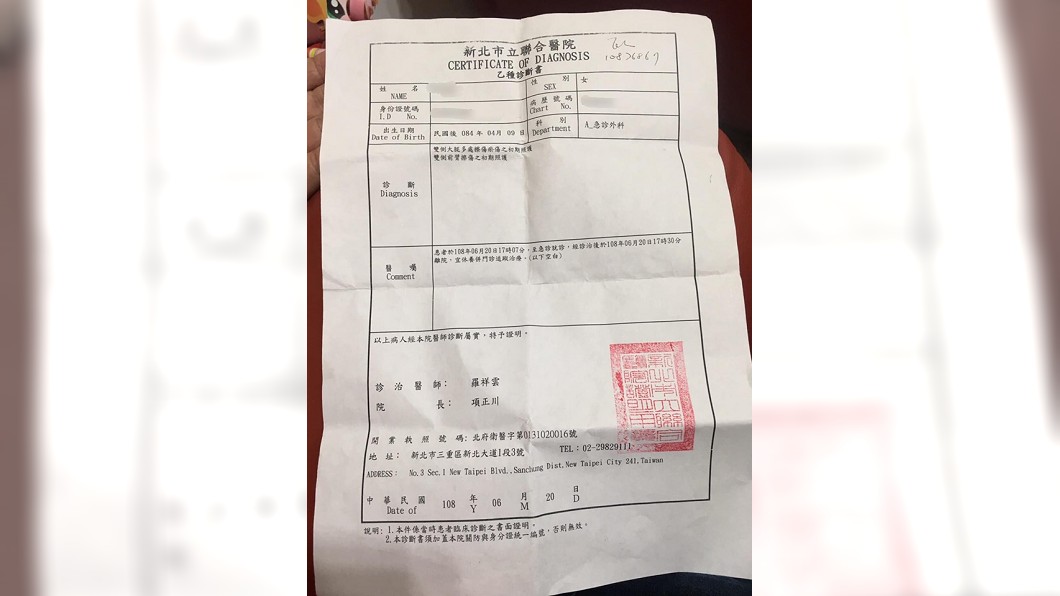 新北市立聯合醫院
CERTIFICATE OF DIAGNOSIS
乙種診斷書
10876867
姓 名
NAME
性 別
SEX
女
身份證號碼
I.D No.
病歷號碼
Chart No.
出生日期
Date of Birth
民國後 084 年 04 月 09 日
科 別
Department
A_急診外科
診 斷
Diagnosis
雙側大腿多處擦傷瘀傷之初期照護
雙側前臂擦傷之初期照護
醫 囑
Comment
患者於108年06月20日17時07分,至急診就診,經診治後於108年06月20日17時30分
離院,宜休養併門診追蹤治療。(以下空白)
以上病人經本院醫師診斷屬實,特予證明。
診 治 醫 師: 羅祥雲
院 長: 項正川
開 業 執 照 號 碼: 北府衛醫字第0131020016號
地 址: 新北市三重區新北大道1段3號 TEL:02-29829111
ADDRESS: No.3 Sec.1 New Taipei Blvd.,Sanchung Dist,New Taipei City 241,Taiwan
中 華 民 國 108 年 06 月 20 日
Date of Y M D
說明: 1.本件係當時患者臨床診斷之書面證明。
2.本診斷書須加蓋本院關防與身分證統一編號,否則無效。